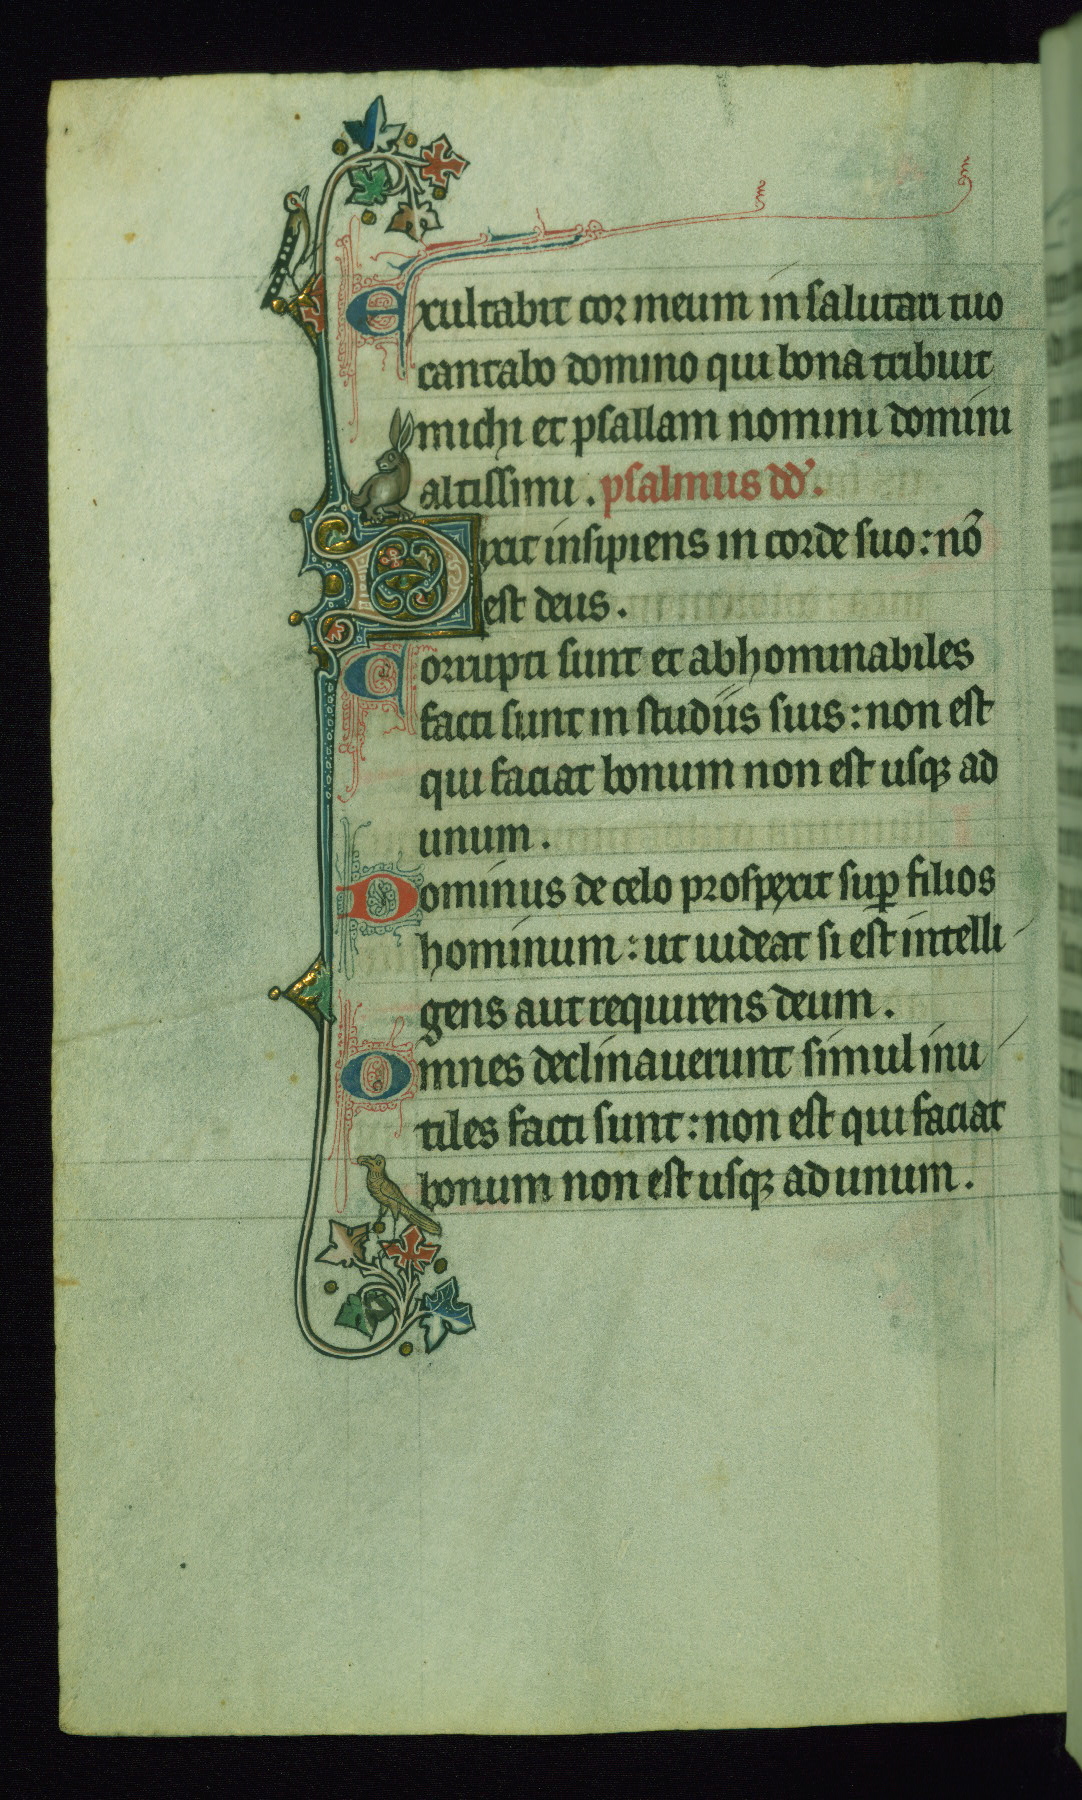 Exultabit cor meum in salutari tuo
cantabo domino qui bona tribuit
michi et psallam nomini domini
altissimi. psalmus dd'.
Dixit insipiens in corde suo: nō
est deus.
Corrupti sunt et abhominabiles
facti sunt in studiis suis: non est
qui faciat bonum non est usqꝫ ad
unum.
Dominus de celo prospexit suꝑ filios
hominum: ut uideat si est intelli
gens aut requirens deum.
Omnes declinauerunt simul inu
tiles facti sunt: non est qui faciat
bonum non est usqꝫ ad unum.